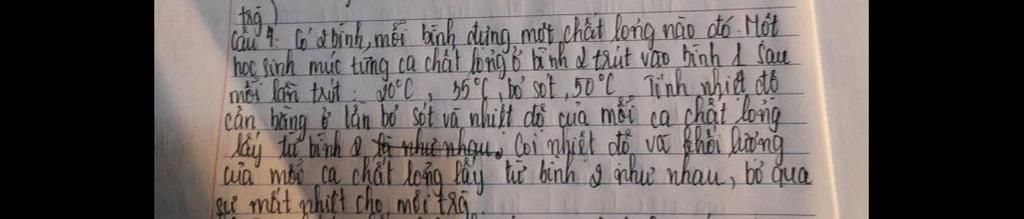 trg)
Câu 4: Có 2 bình, mỗi bình đựng một chất lỏng nào đó. Một
học sinh múc từng ca chất lỏng ở bình 2 trút vào bình 1 sau
mỗi lần trút: 20°C, 35°C, bỏ sót, 50°C Tính nhiệt độ
cân bằng ở lần bỏ sót và nhiệt độ của mỗi ca chất lỏng
lấy từ bình 2, là như nhau. Coi nhiệt độ và khối lượng
của mỗi ca chất lỏng lấy từ bình 2 như nhau, bỏ qua
sự mất nhiệt cho môi trg.